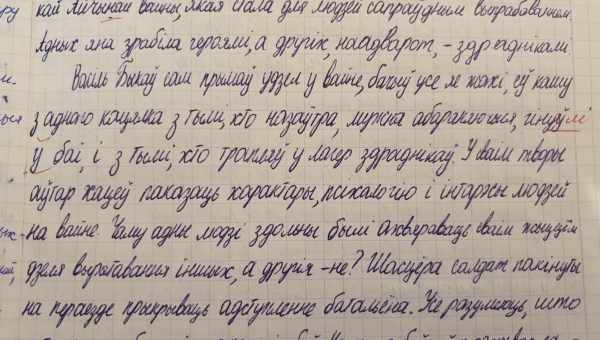 кай Айчынай вайны, якая стала для людзей сапраўдным выпрабаваннем.
Адных яна зрабіла героямі, а другіх, наадварот, - здраднікамі.
Васіль Быкаў сам прымаў удзел у вайне, бачыў усе яе жахі, еў кашу
з аднаго кацялка з тымі, хто назаўтра, мужна абараняючыся, гінуў
ў баі, і з тымі, хто трапляў у лагер здраднікаў. У сваім творы
аўтар хацеў паказаць характары, псіхалогію і інтарэсы людзей
на вайне. Чаму адны людзі здольны былі ахвяраваць сваім жыццём
дзеля выратавання іншых, а другія - не? Шасцёра салдат пакінуты
на пераездзе прыкрываць адступленне батальёна. Не разумеюць, што